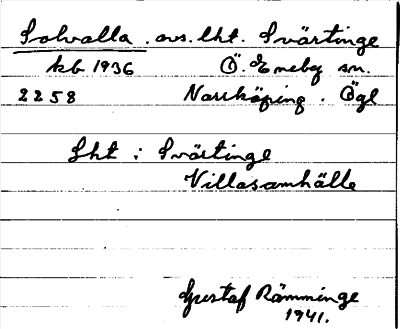 Solvalla. avs. lht. Svärtinge
kb 1936 Ö. Eneby sn.
2258 Norrköping. Ögl
Lht i Svärtinge
Villasamhälle
Gustaf Rämminge
1941.